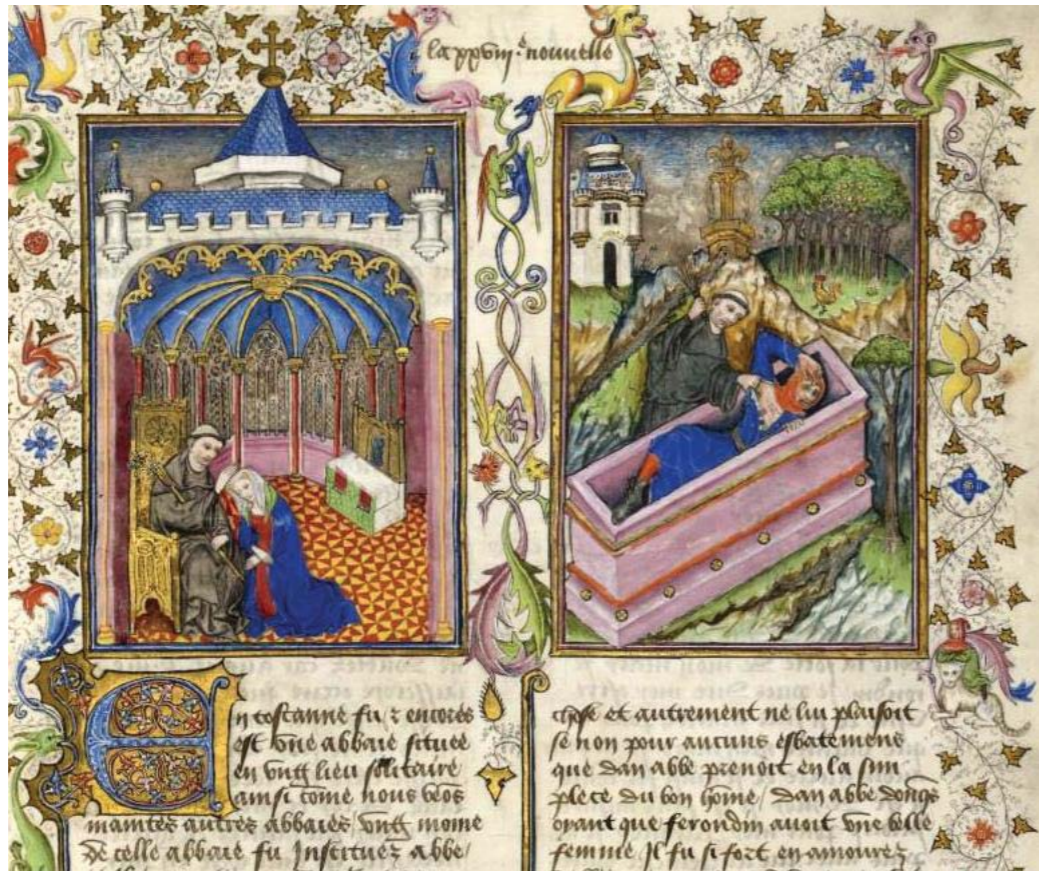 la xxviij.e nouvelle
En toscanne fu et encores
est une abbaie située
en ung lieu solitaire
ainsi come nous veos
maintes autres abbaies / ung moine
de celle abbaie fu Instituez abbe /
chose et autrement ne lui plaisoit
se non pour aucuns esbatemens
que dan abbe prenoit en la sim
plece du bon home / dan abbe donqs
oyant que ferondin avoit une belle
femme Il fu si fort en amourez